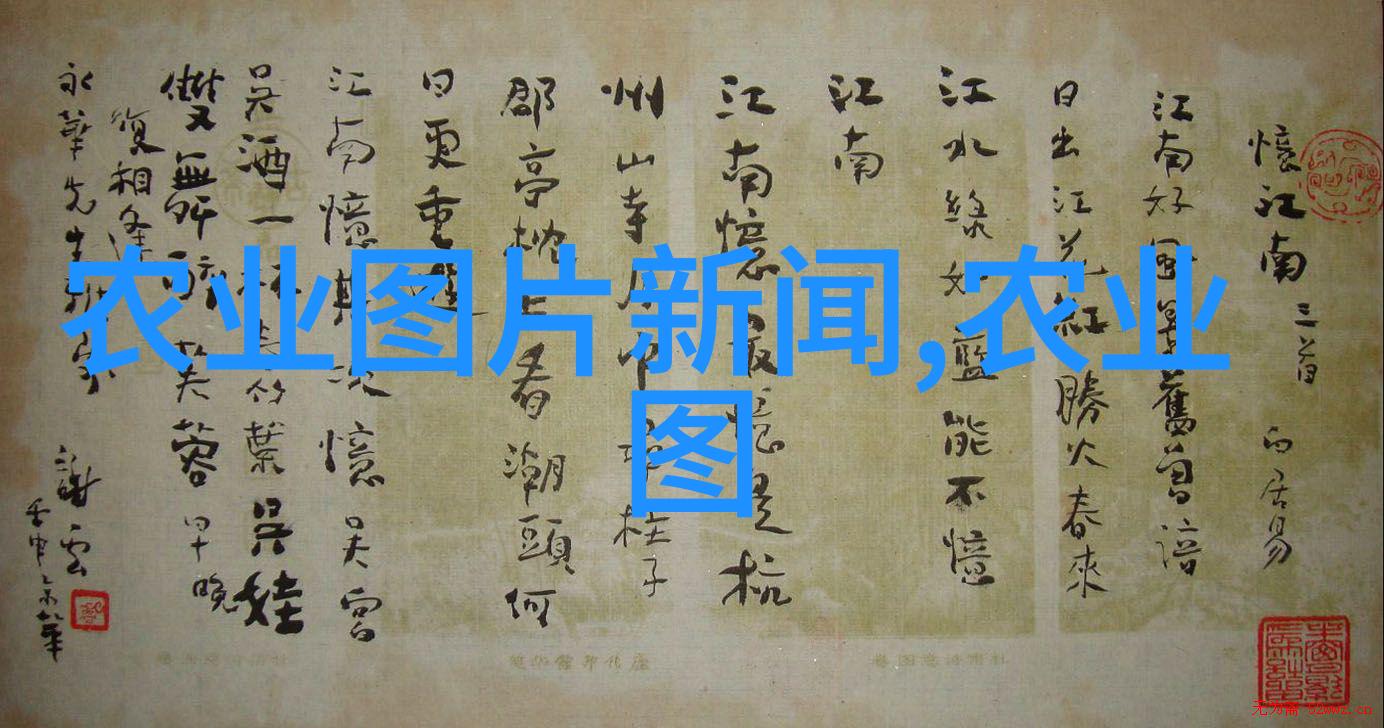 農业图片新闻,农业
图
憶江南 三首 白居易
江南好風景舊曾諳
日出江花紅勝火春來
江水綠如藍能不憶
江南
江南憶最憶是杭
州山寺月中尋桂子
郡亭枕上看潮頭何
日更重遊
江南憶其次憶吳宮
吳酒一杯春竹葉吳娃
雙舞醉芙蓉早晚
復相逢
永華先生
謝雲